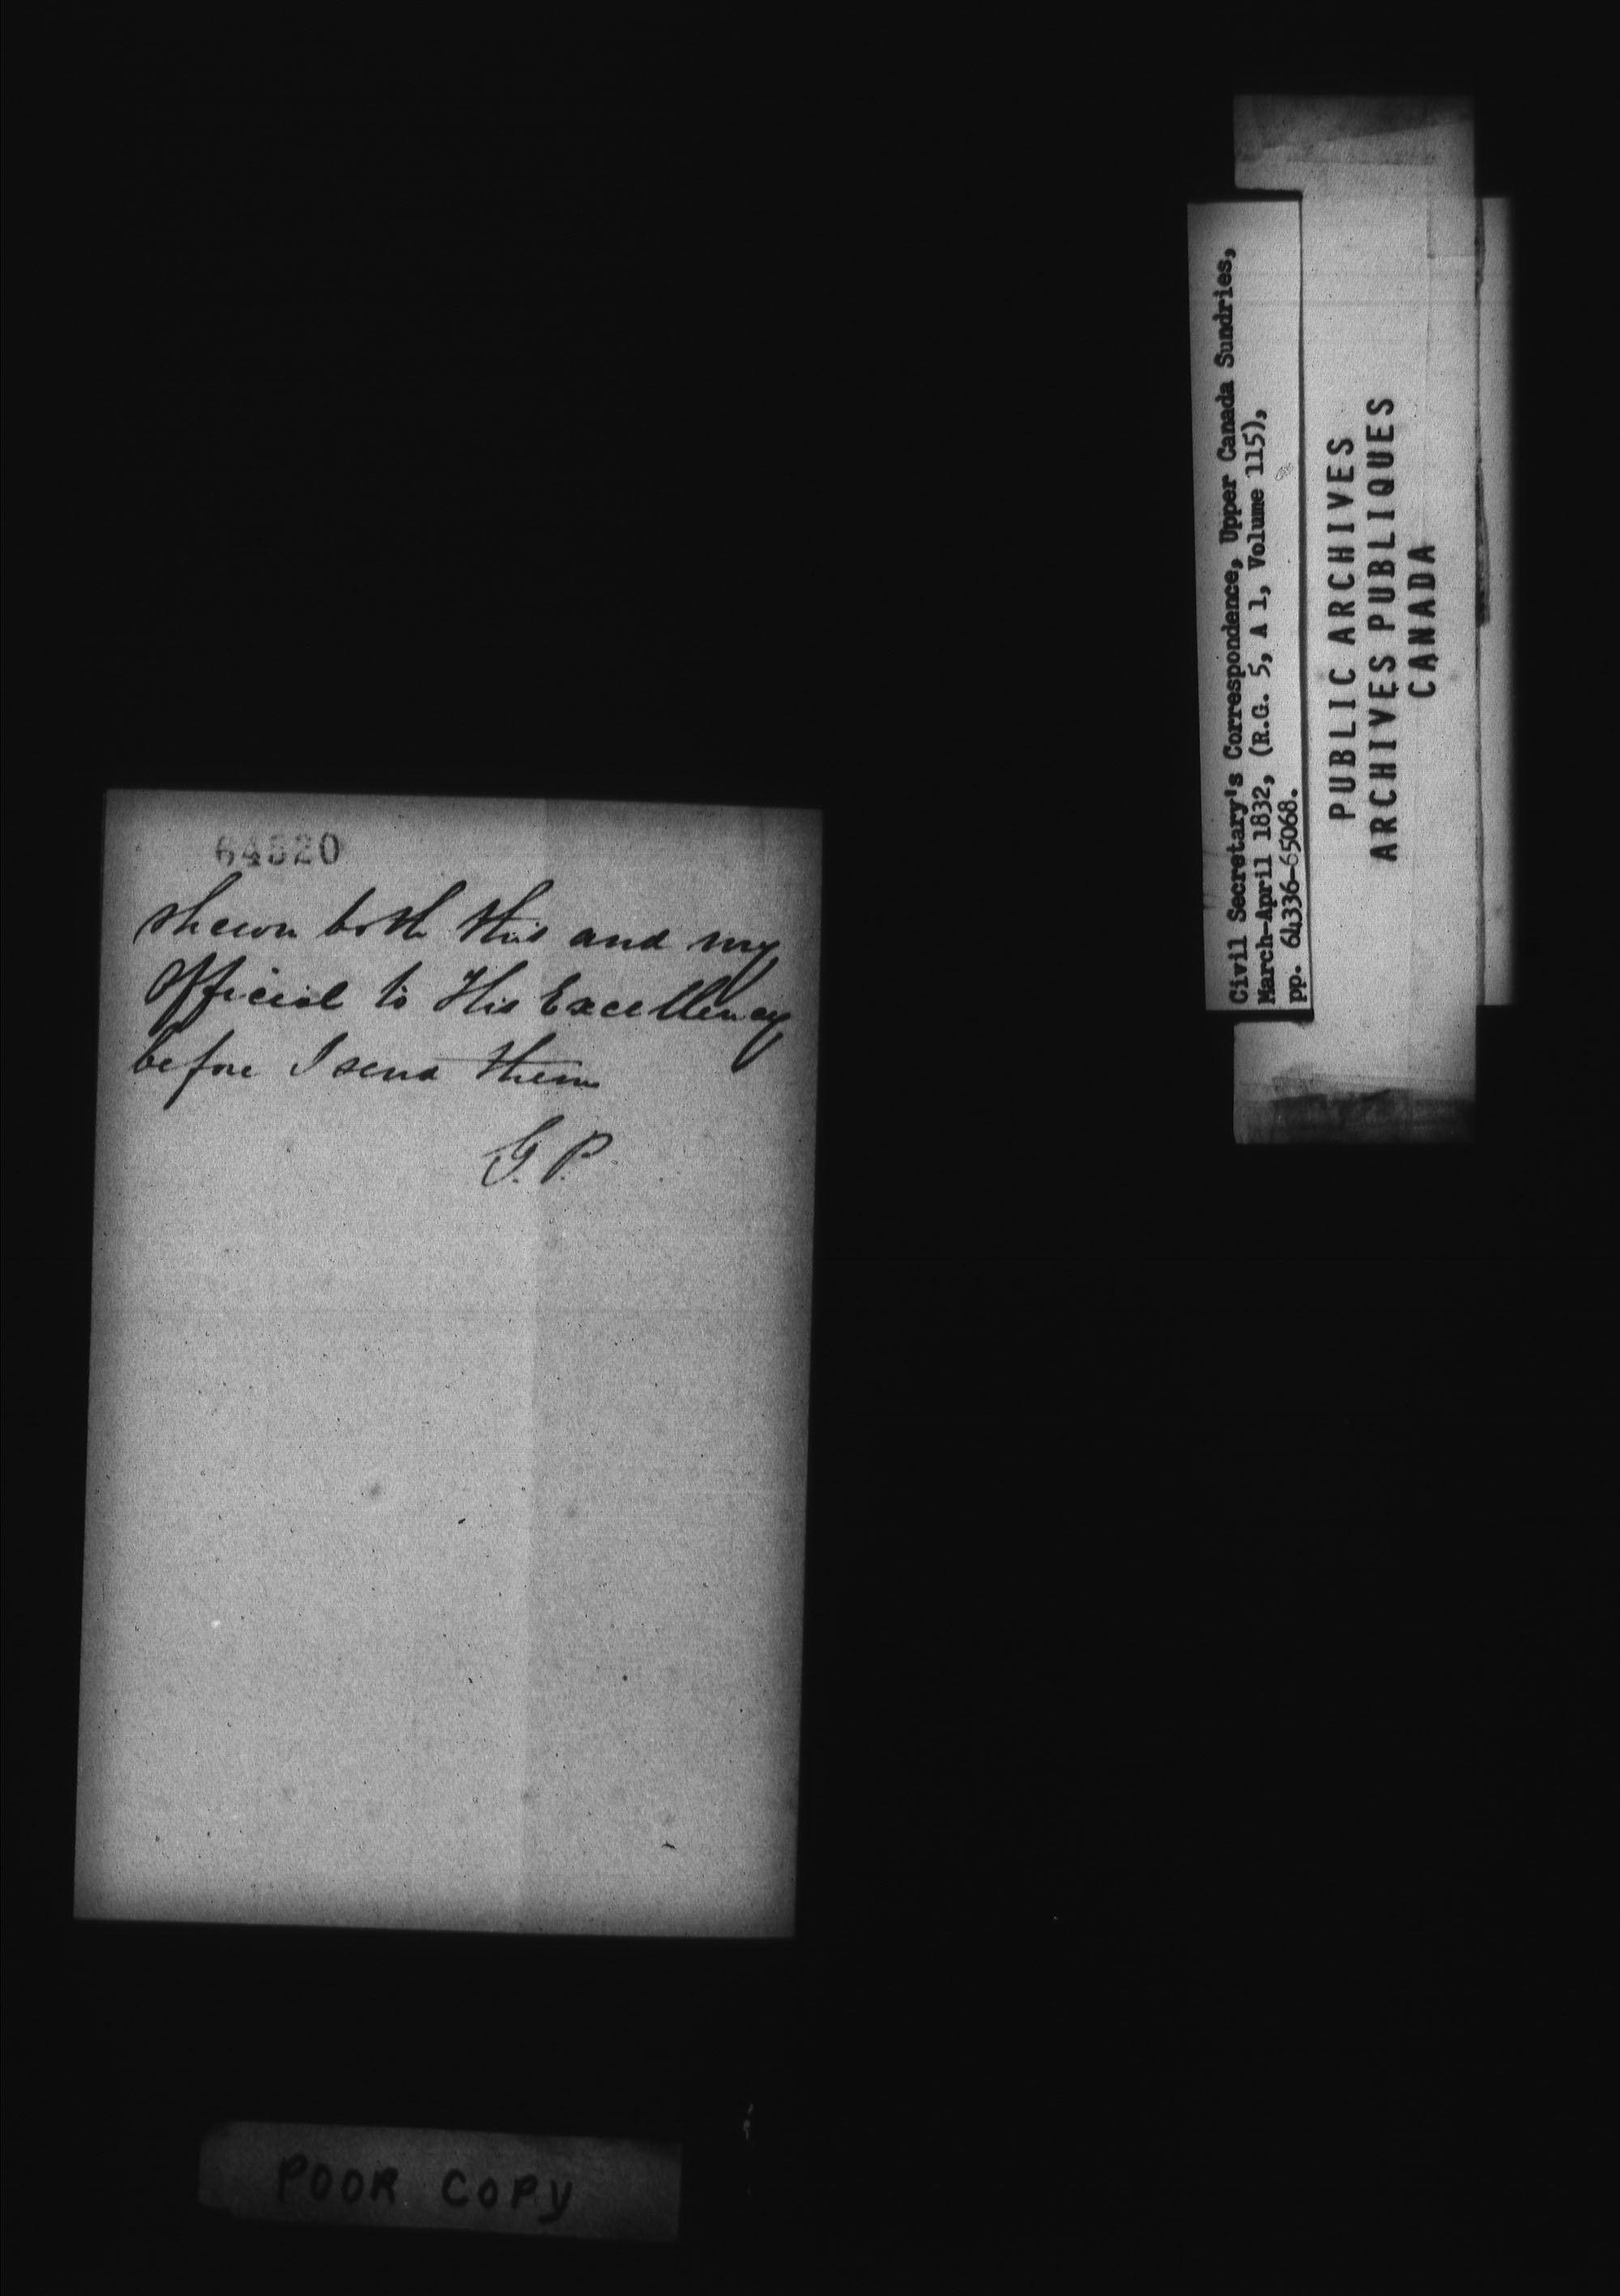 64520
shewn both this and my
Official to His Excellency
before I send them
G. P.
Civil Secretary's Correspondence, Upper Canada Sundries,
March-April 1832, (R.G. 5, A 1, Volume 115),
pp. 64336-65068.
PUBLIC ARCHIVES
ARCHIVES PUBLIQUES
CANADA
POOR COPY